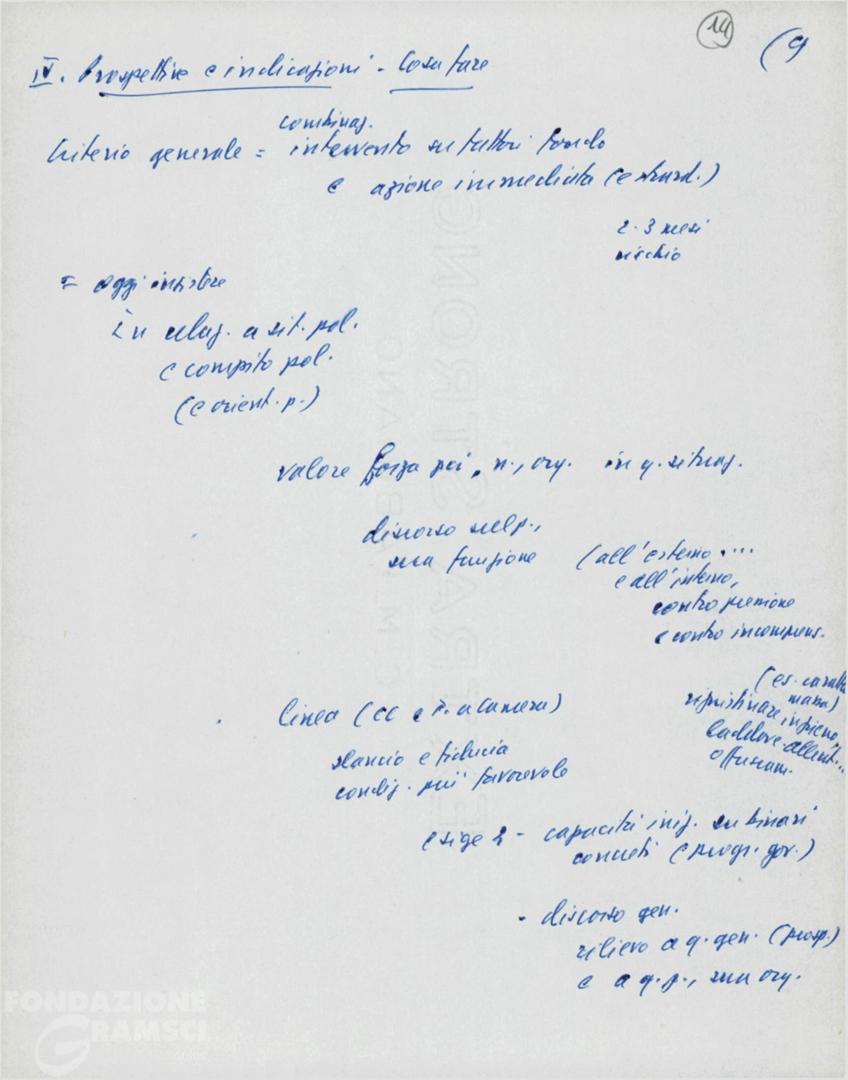 14
(9
IV. Prospettive e indicazioni - Cosa fare
combinaz.
Criterio generale = intervento su fattori fondo
e azione immediata (e straord.)
2-3 mesi
rischio
= oggi insistere
in relaz. a sit. pol.
e compito pol.
(e orient. p.)
valore forza pci, n., org. in q. situaz.
discorso sul p.,
sua funzione
(all'esterno ...
e all'interno,
contro pressione
e contro incomprens.
(es. caratt.
massa)
ripristinare in pieno,
laddove allent...
offuscam.
linea (CC e a Camera)
slancio e fiducia
condiz. più favorevole
esige 2 - capacità iniz. su binari
concreti (progr. gov.)
- discorso gen.
rilievo a q. gen. (prosp.)
e a q. p., sua org.
FONDAZIONE
GRAMSCI